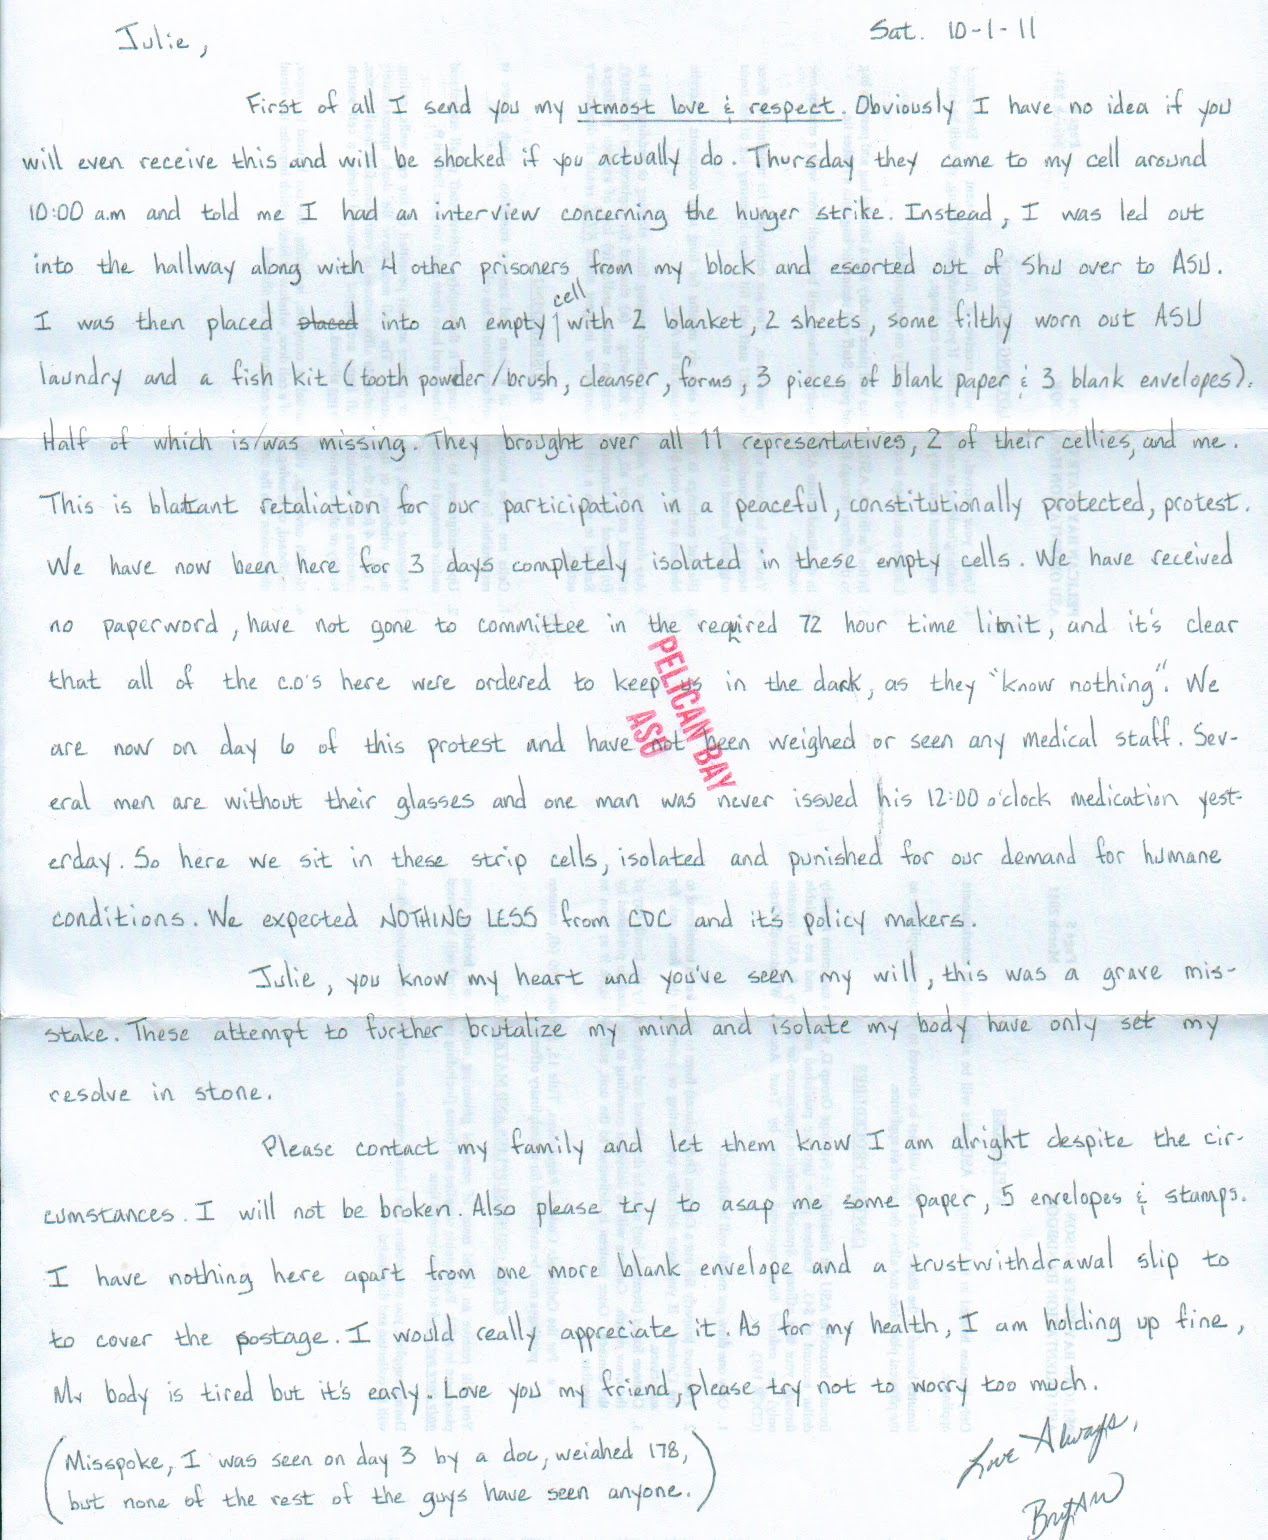 Julie,
Sat. 10-1-11
First of all I send you my utmost love & respect. Obviously I have no idea if you
will even receive this and will be shocked if you actually do. Thursday they came to my cell around
10:00 a.m and told me I had an interview concerning the hunger strike. Instead, I was led out
into the hallway along with 4 other prisoners from my block and escorted out of SHU over to ASU.
I was then placed placed into an empty cell with 2 blanket, 2 sheets, some filthy worn out ASU
laundry and a fish kit (tooth powder/brush, cleanser, forms, 3 pieces of blank paper & 3 blank envelopes).
Half of which is/was missing. They brought over all 11 representatives, 2 of their cellies, and me.
This is blattant retaliation for our participation in a peaceful, constitutionally protected, protest.
We have now been here for 3 days completely isolated in these empty cells. We have received
no paperword, have not gone to committee in the required 72 hour time limit, and it's clear
that all of the c.o's here were ordered to keep us in the dark, as they "know nothing". We
are now on day 6 of this protest and have not been weighed or seen any medical staff. Sev-
eral men are without their glasses and one man was never issued his 12:00 o'clock medication yest-
erday. So here we sit in these strip cells, isolated and punished for our demand for humane
conditions. We expected NOTHING LESS from CDC and it's policy makers.
PELICAN BAY
ASU
Julie, you know my heart and you've seen my will, this was a grave mis-
stake. These attempt to further brutalize my mind and isolate my body have only set my
resolve in stone.
Please contact my family and let them know I am alright despite the cir-
cumstances. I will not be broken. Also please try to asap me some paper, 5 envelopes & stamps.
I have nothing here apart from one more blank envelope and a trustwithdrawal slip to
to cover the postage. I would really appreciate it. As for my health, I am holding up fine,
My body is tired but it's early. Love you my friend, please try not to worry too much.
Love Always,
(Misspoke, I was seen on day 3 by a doc, weiahed 178,
but none of the rest of the guys have seen anyone.)